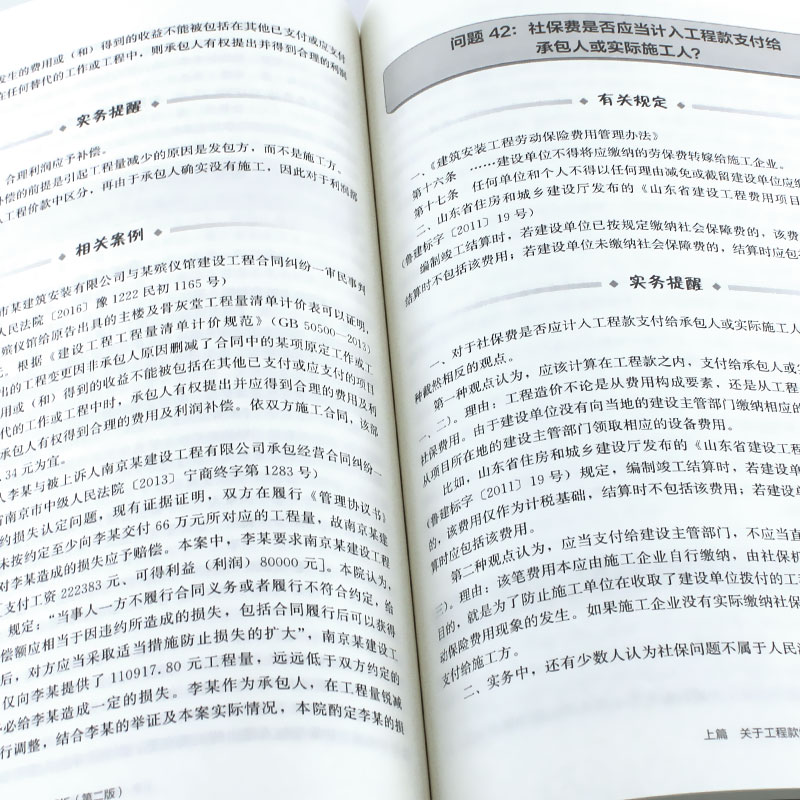 发生的费用或（和）得到的收益不能被包括在其他已支付或应支付
在任何替代的工作或工程中，则承包人有权提出并得到合理的利润
实务提醒
合理利润应予补偿。
补偿的前提是引起工程量减少的原因是发包方，而不是施工方。
人工程价款中区分，再由于承包人确实没有施工，因此对于利润部
相关案例
市某建筑安装有限公司与某殡仪馆建设工程合同纠纷一审民事判
人民法院［2016］豫 1222 民初 1165 号）
殡仪馆给原告出具的主楼及骨灰堂工程量清单计价表可以证明，
元。根据《建设工程工程量清单计价规范》（GB 50500—2013）
出的工程变更因非承包人原因删减了合同中的某项原定工作或工
用或（和）得到的收益不能被包括在其他已支付或应支付的项目
代的工作或工程中时，承包人有权提出并应得到合理的费用及利
承包人有权得到合理的费用及利润补偿。依双方施工合同，该部
.34 元为宜。
人李某与被上诉人南京某建设工程有限公司承包经营合同纠纷一
省南京市中级人民法院［2013］宁商终字第 1283 号）
约损失认定问题，现有证据证明，双方在履行《管理协议书》
未按约定至少向李某交付 66 万元所对应的工程量，故南京某建
对李某造成的损失应予赔偿。本案中，李某要求南京某建设工程
支付工资 222383 元、可得利益（利润）80000 元］。本院认为，
规定：“当事人一方不履行合同义务或者履行不符合约定，给
偿额应相当于因违约所造成的损失，包括合同履行后可以获得
后，对方应当采取适当措施防止损失的扩大”，南京某建设工
仅向李某提供了 110917.80 元工程量，远远低于双方约定的
必给李某造成一定的损失。李某作为承包人，在工程量锐减
行调整，结合李某的举证及本案实际情况，本院酌定李某的损
（第二版）
问题 42：社保费是否应当计入工程款支付给
承包人或实际施工人？
有关规定
一、《建筑安装工程劳动保险费用管理办法》
第十六条 ……建设单位不得将应缴纳的劳保费转嫁给施工企业。
第十七条 任何单位和个人不得以任何理由减免或截留建设单位应缴
二、山东省住房和城乡建设厅发布的《山东省建设工程费用项目
（鲁建标字［2011］19 号）
编制竣工结算时，若建设单位已按规定缴纳社会保障费的，该费
结算时不包括该费用；若建设单位未缴纳社会保障费的，结算时应包
实务提醒
一、对于社保费是否应计入工程款支付给承包人或实际施工人
种截然相反的观点。
第一种观点认为，应该计算在工程款之内，支付给承包人或实
一、二）。理由：工程造价不论是从费用构成要素，还是从工程
社保费用。由于建设单位没有向当地的建设主管部门缴纳相应的
从项目所在地的建设主管部门领取相应的设备费用。
比如，山东省住房和城乡建设厅发布的《山东省建设工程
（鲁建标字［2011］19 号）规定，编制竣工结算时，若建设单
的，该费用仅作为计税基础，结算时不包括该费用；若建设单
算时应包括该费用。
第二种观点认为，应当支付给建设主管部门，不应当直
三）。理由：该笔费用本应由施工企业自行缴纳，由社保机
目的，就是为了防止施工单位在收取了建设单位拨付的工
动保险费用现象的发生。如果施工企业没有实际缴纳社保
支付给施工方。
二、实务中，还有少数人认为社保问题不属于人民
上篇 关于工程款